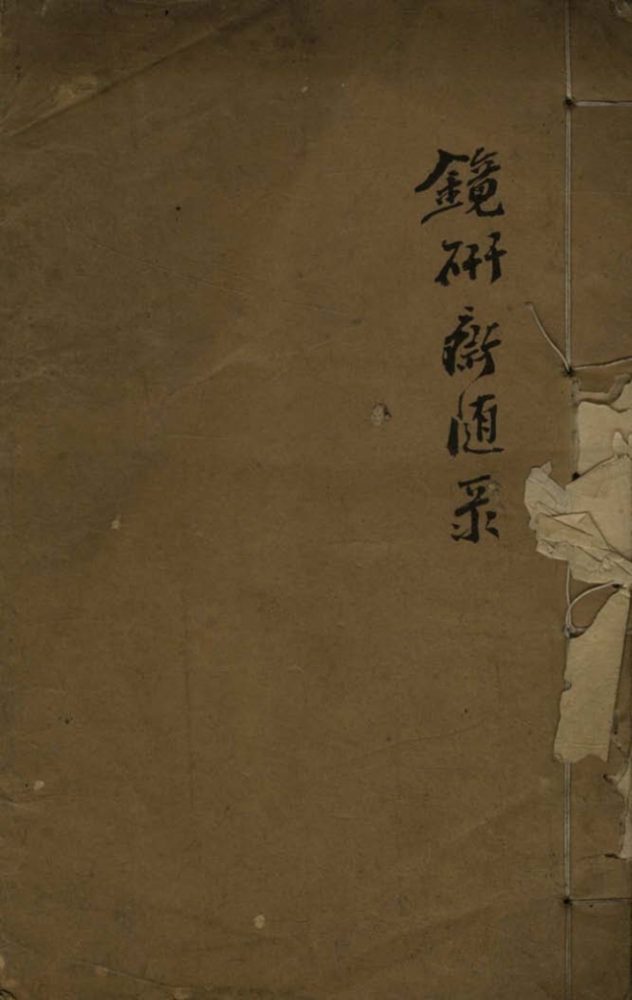 鏡研齋随录